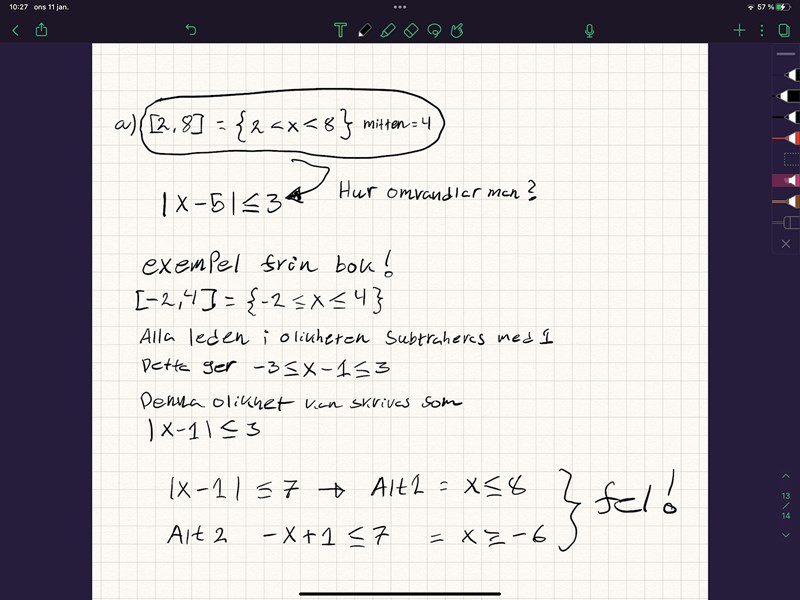 10:27 ons 11 jan.
57 %
a) [2,8] = {2 < x < 8} mitten = 4
|x-5| ≤ 3 Hur omvandlar man?
exempel från bok!
[-2,4] = {-2 ≤ x ≤ 4}
Alla leden i olikheten Subtraheras med 1
Detta ger -3 ≤ x-1 ≤ 3
Denna olikhet kan skrivas som
|x-1| ≤ 3
|x-1| ≤ 7 → Alt 1 = x ≤ 8
Alt 2 -x+1 ≤ 7 = x ≥ -6
} fel!
13
/
14